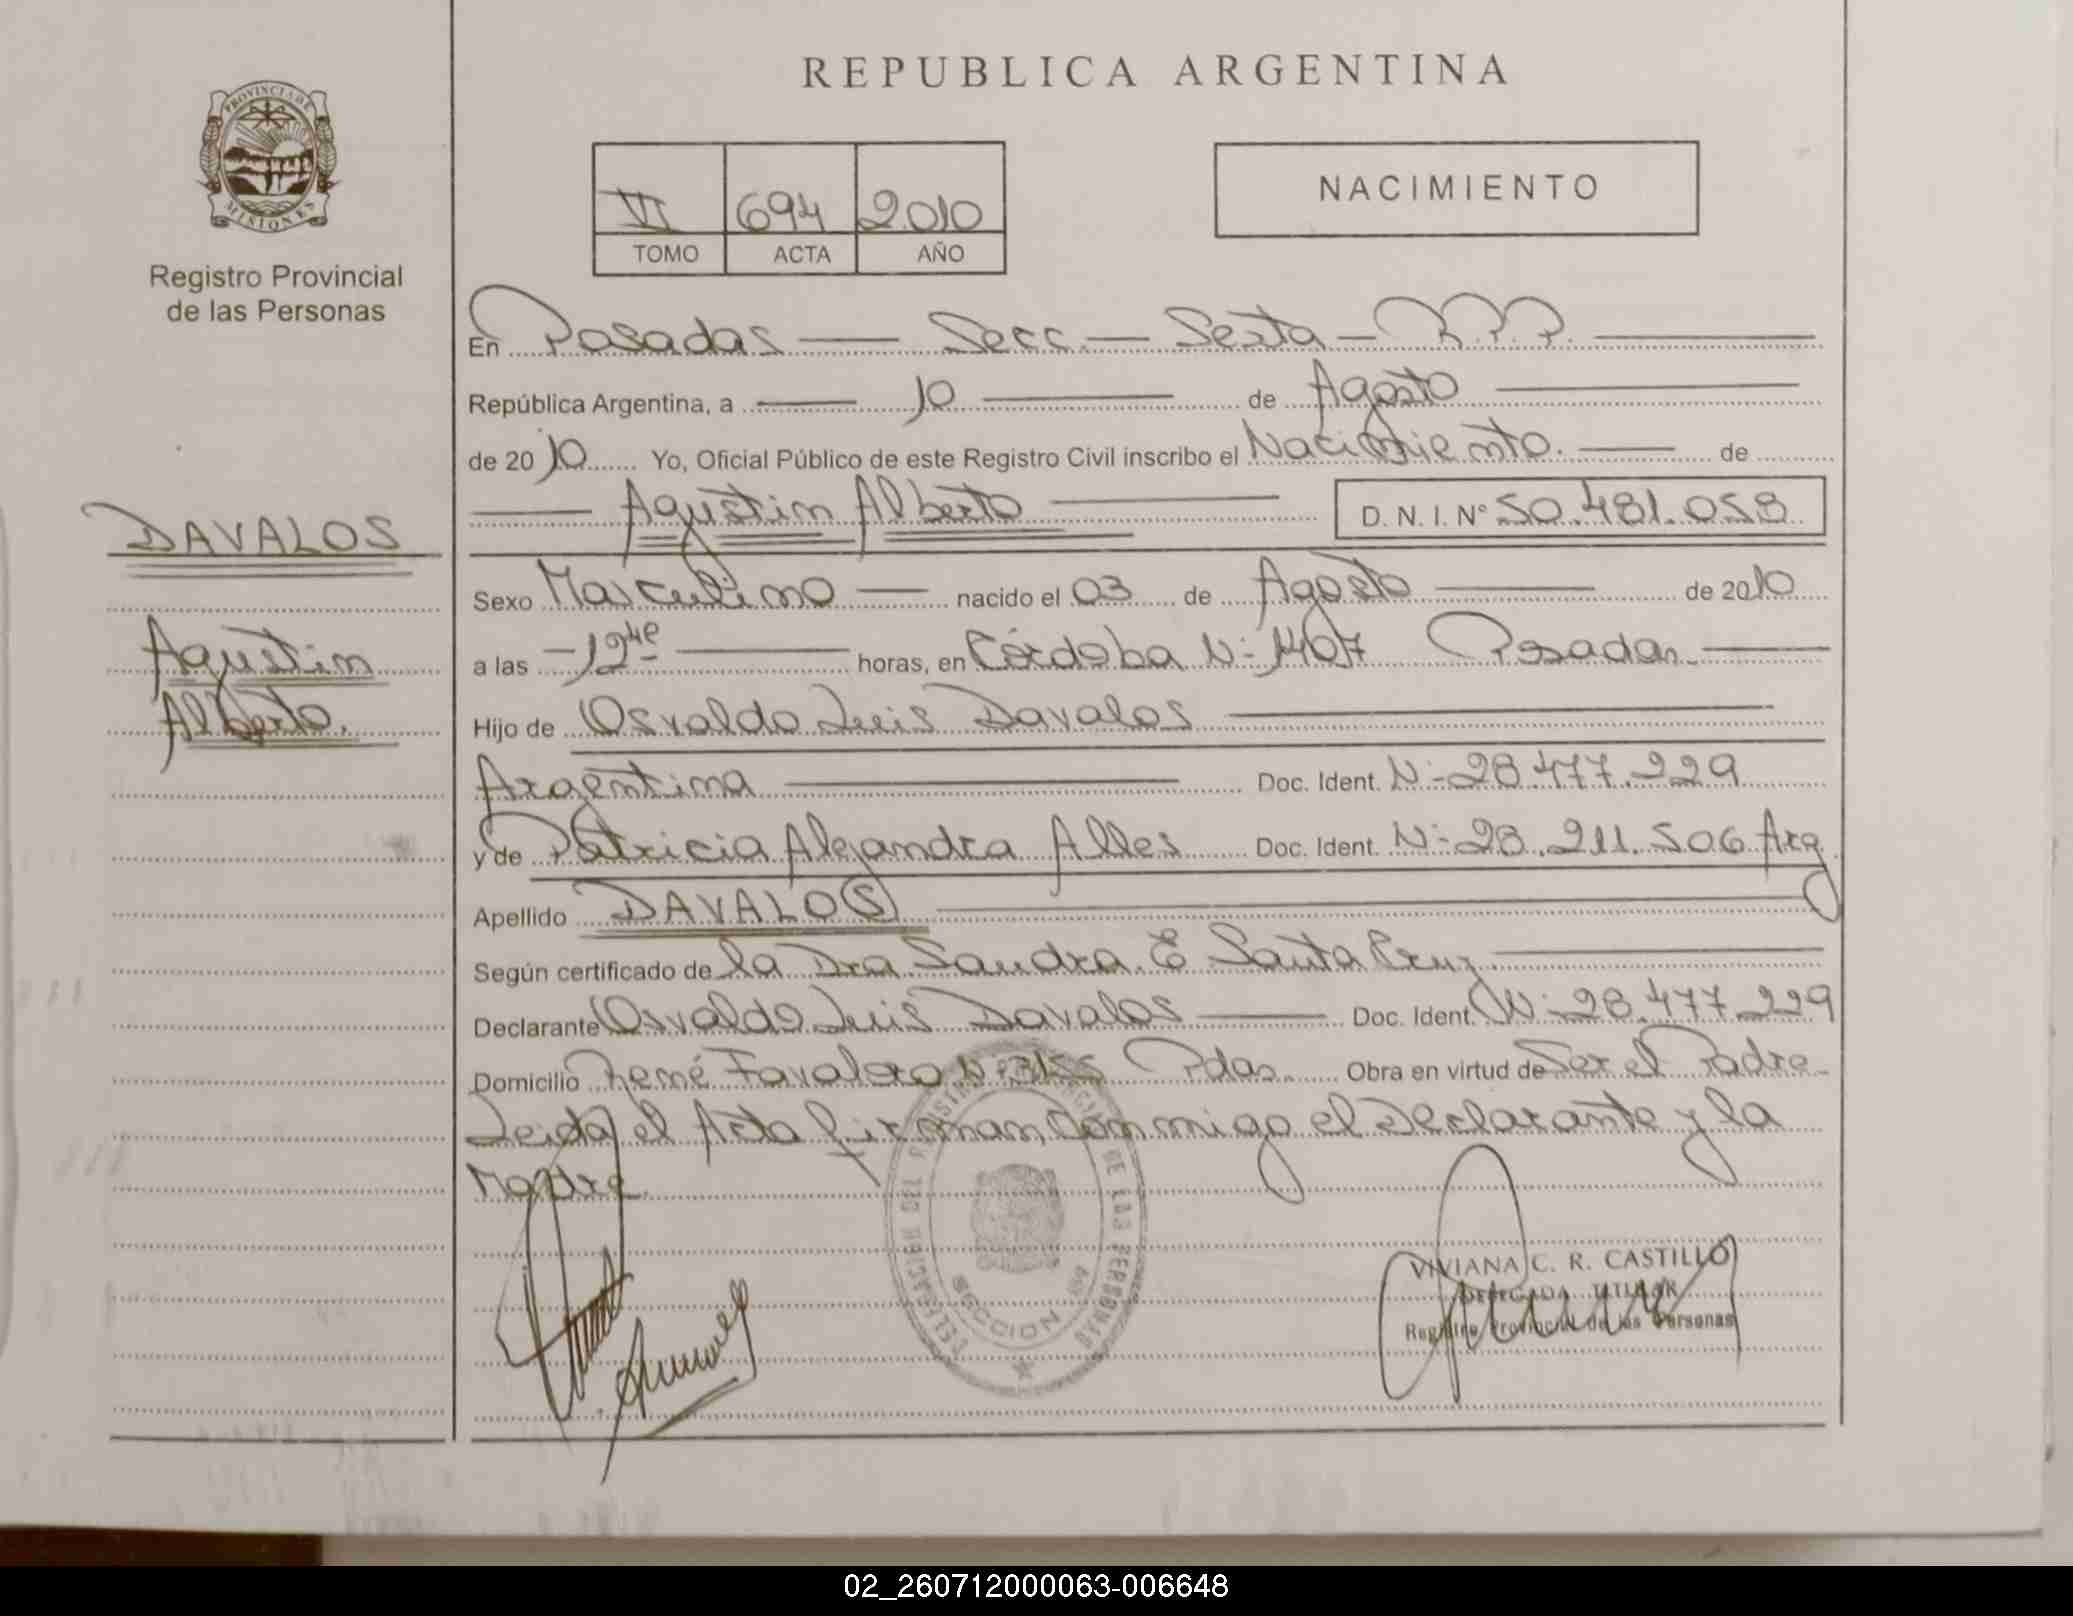 REPUBLICA ARGENTINA
PROVINCIA DE
MISIONES
Registro Provincial
de las Personas
VI 694 2010
TOMO ACTA AÑO
NACIMIENTO
DAVALOS
Agustin
Alberto.
En Posadas — Secc. — Sexta — R.P.P.
República Argentina, a — 10 — de Agosto
de 2010 Yo, Oficial Público de este Registro Civil inscribo el Nacimiento. — de
— Agustin Alberto — D. N. I. N° 50.481.058
Sexo Masculino — nacido el 03 de Agosto — de 2010
a las — 12 — horas, en Córdoba N: 1407 Posadas. —
Hijo de Osvaldo Luis Davalos —
Argentina — Doc. Ident. N: 28.477.229
y de Patricia Alejandra Alles Doc. Ident. N: 28.211.506 Arg
Apellido DAVALOS —
Según certificado de la Dra Sandra E Santa Cruz —
Declarante Osvaldo Luis Davalos — Doc. Ident. N: 28.477.229
Domicilio René Favaloro Pdas. Obra en virtud de Ser el Padre
Leida el Acta firman conmigo el Declarante y la
Madre
DELEGACION REGISTRO PROVINCIAL DE LAS PERSONAS
SECCION
VIVIANA C. R. CASTILLO
DELEGADA TITULAR
Registro Provincial de las Personas
02_260712000063-006648